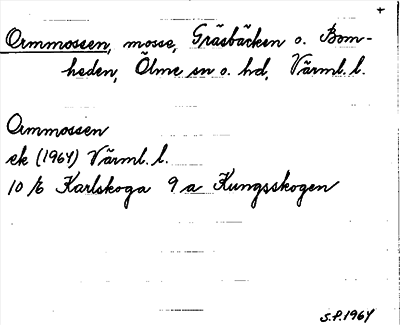 +
Ormmossen, mosse, Gräsbäcken o. Bom-
heden, Ölme sn o. hd, Värml. l.
Ormmossen
ek (1964) Värml. l.
10 /6 Karlskoga 9 a Kungsskogen
S.P. 1964